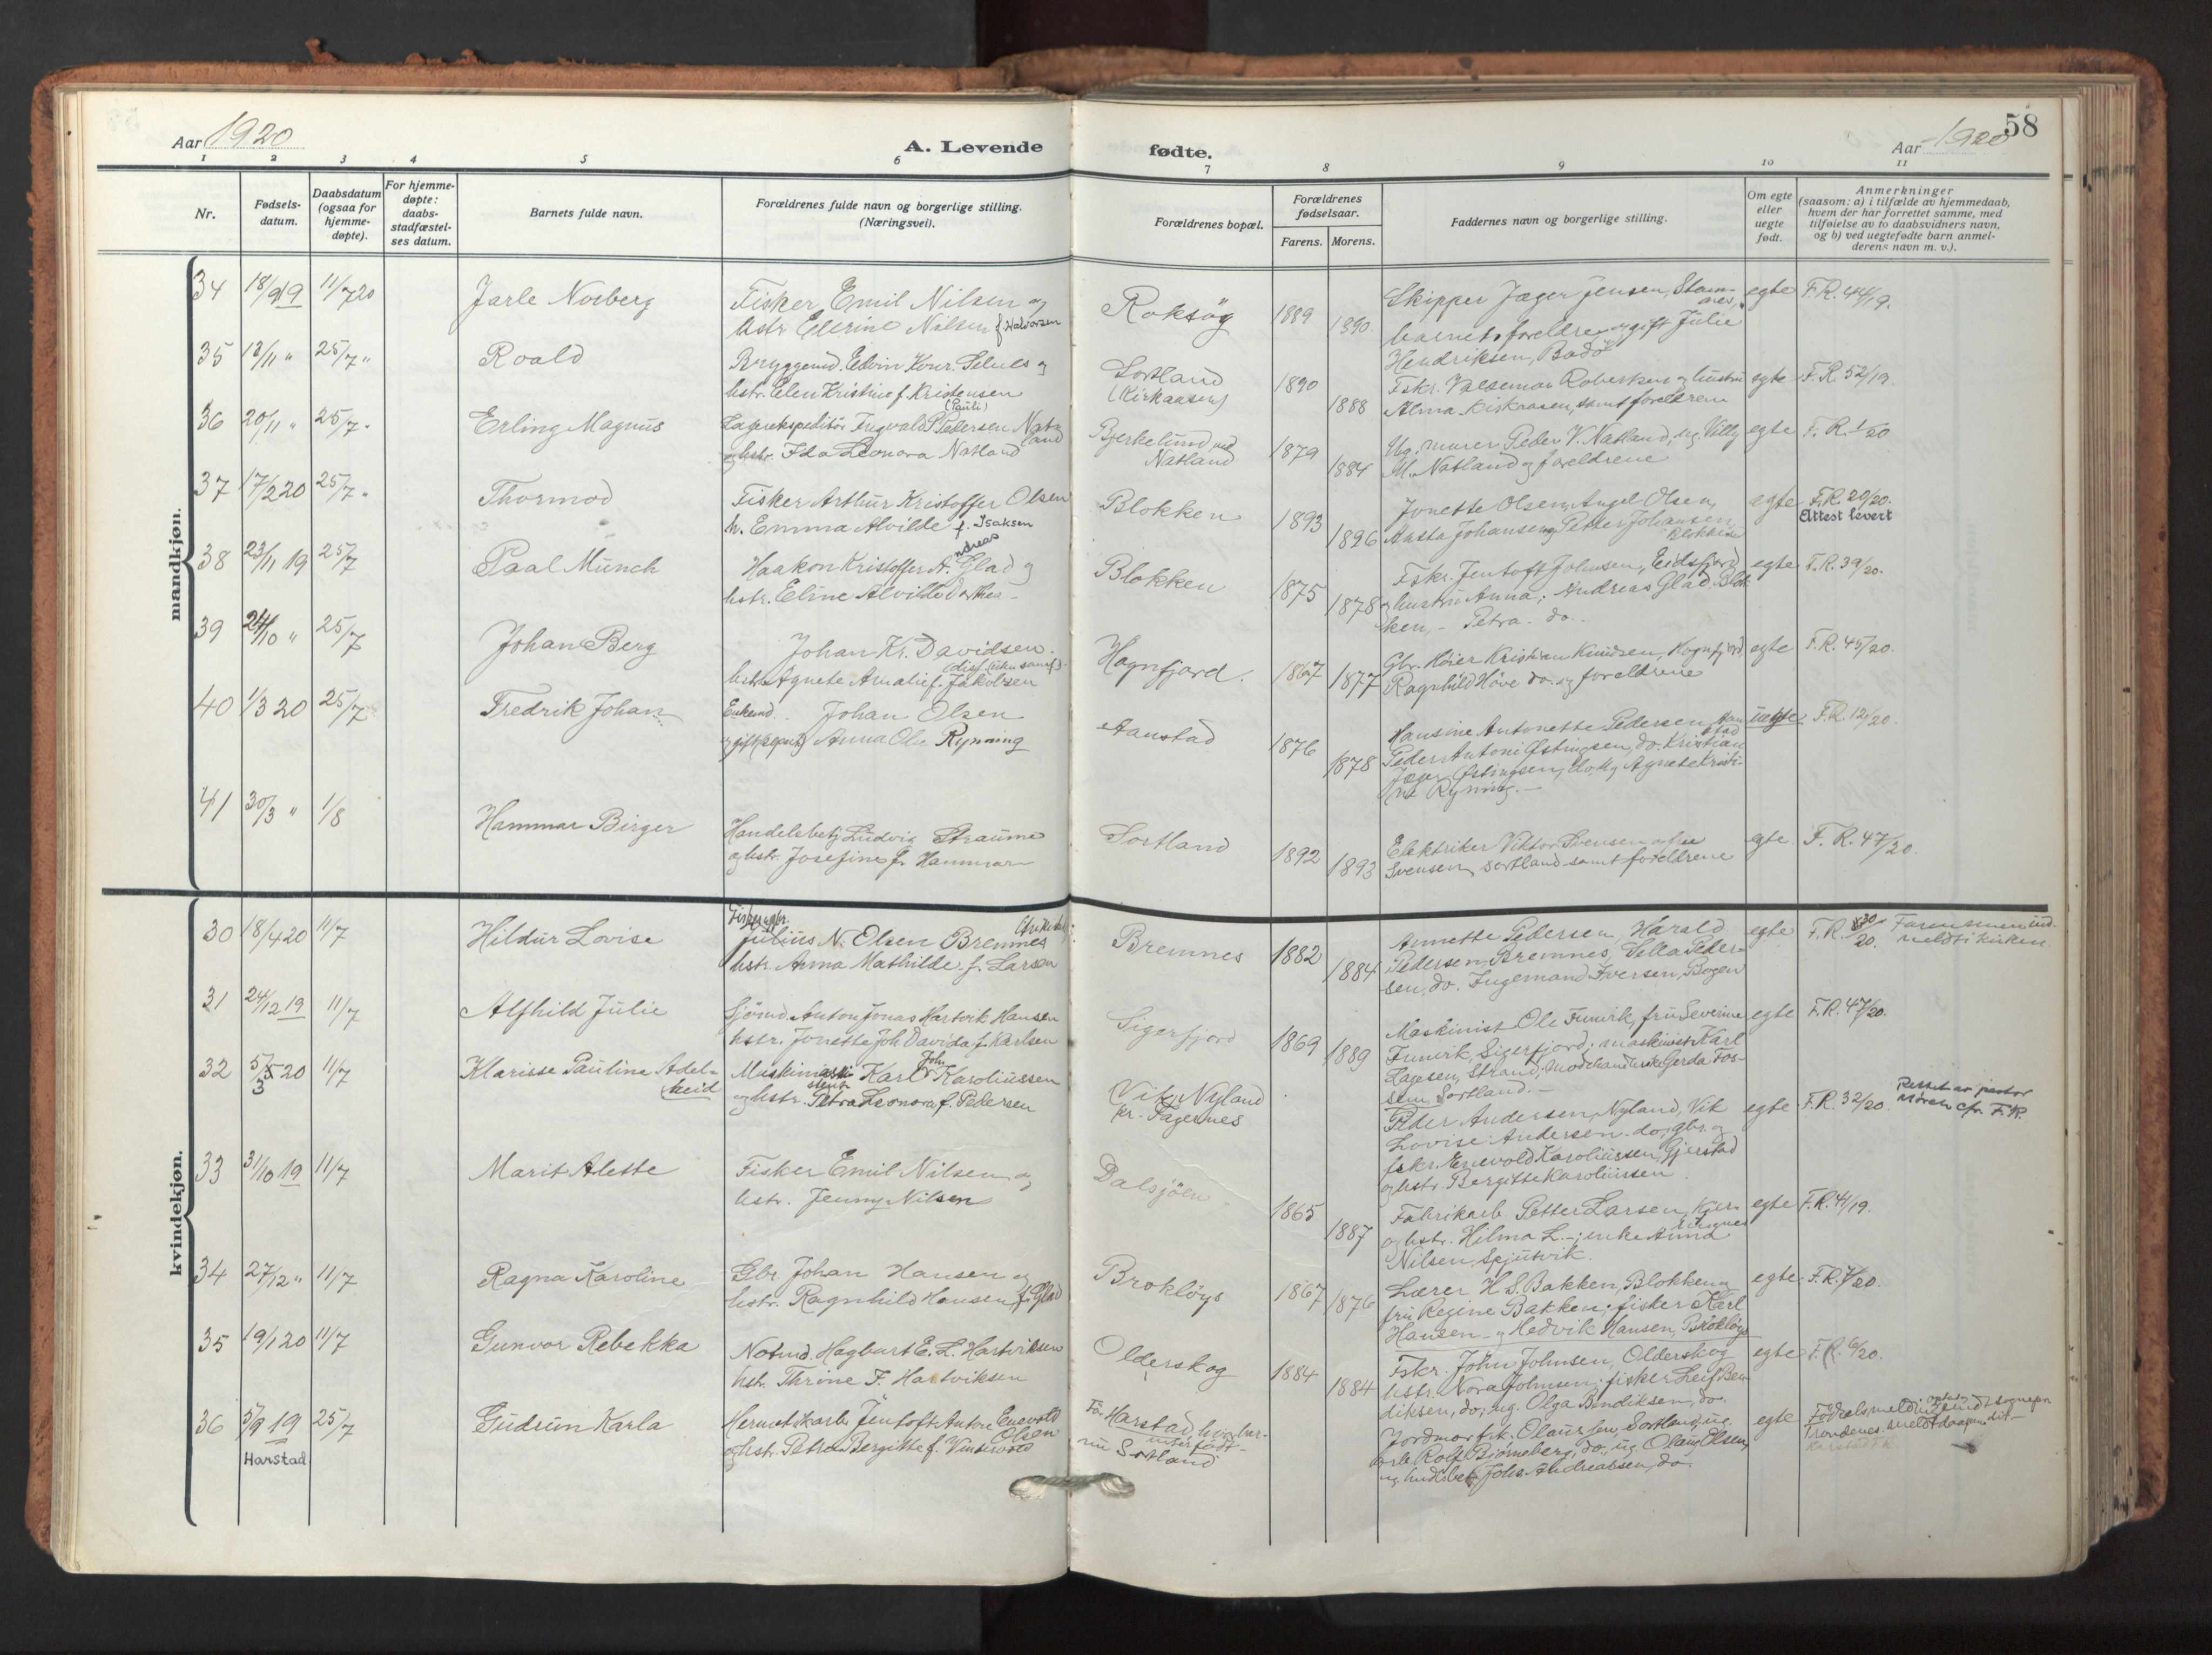 Aar 1920
A. Levende
fødte.
Aar 1920
58
1 2 3 4 5 6 7 8 9 10 11
Nr.
Fødsels-
datum.
Daabsdatum
(ogsaa for
hjemme-
døpte).
For hjemme-
døpte:
daabs-
stadfæstel-
ses datum.
Barnets fulde navn.
Forældrenes fulde navn og borgerlige stilling.
(Næringsvei).
Forældrenes bopæl.
Forældrenes
fødselsaar.
Farens. Morens.
Faddernes navn og borgerlige stilling.
Om egte
eller
uegte
født.
Anmerkninger
(saasom: a) i tilfælde av hjemmedaab,
hvem der har forrettet samme, med
tilføielse av to daabsvidners navn,
og b) ved uegtefødte barn anmel-
derens navn m. v.).
mandkjøn.
34 18/9 19 11/7 20 Jarle Norberg
Fisker Emil Nilsen og
hstr. Ellerine Nilsen f. Halvorsen
Roksöy 1889 1890
Skipper Jæger Jensen,
barnets foreldre og gift Julie
Hendriksen, Bodö
egte F.R. 44/19.
35 13/11 " 25/7 " Roald
Bryggemd. Edvin Konr. og
hstr. Elen Kristine f. Kristensen
Sortland
(Kirkaasen)
1890 1888
Fskr. Valdemar Robertsen og hustru
Alma Kirkaasen, samt foreldrene
egte F.R. 52/19
36 20/11 " 25/7 " Erling Magnus
(Pauli)
Lagerekspeditör Ingvald P. Pedersen Nat-
land
og hstr. Ida Leonora Natland
Bjerkelund ved
Natland
1879 1884
Ug. murer Peder V. Natland, ug. Villy
M. Natland og foreldrene
egte F.R. 1/20
37 17/2 20 25/7 " Thormod
Fisker Arthur Kristoffer Olsen
h. Emma Alvilde f. Isaksen
Blokken 1893 1896
Jonette Olsen, Angel Olsen,
Aasta Johansen og Petter Johansen
Blokken
egte F.R. 20/20.
Attest levert
38 23/11 19 25/7 Paal Münch
Haakon Kristoffer Andreas Glad og
hstr. Eline Alvilde Dorthea
Blokken 1875 1878
Fskr. Jentoft Johnsen, Eidsfjord
og hustru Anna; Andreas Glad, Blok-
ken, - Petra - do.
egte F.R. 39/20.
39 24/10 " 25/7 Johan Berg
Johan Kr. Davidsen.
hstr. Agnete Amalie f. Jakobsen
Hognfjord. 1867 1877
Gbr. Höier Kristian Knudsen, Hognfjord
Ragnhild Höve do. og foreldrene
egte F.R. 45/20.
40 1/3 20 25/7 Fredrik Johan
Enkemd. Johan Olsen
og gift (separ.) Anna Oline Rynning
Aanstad 1876 1878
Hansine Antonette Pedersen, Aan-
stad
Peder Antoni Østingsen, do. Kristian
Jæger Østingsen, do. og Agnete Kristi-
ne Ryning. -
uegte F.R. 12/20.
41 30/3 " 1/8 Hammar Birger
Handelsbetj Ludvig Straume
og hstr. Josefine f. Hammar
Sortland 1892 1893
Elektriker Viktor Svensen og frue
Svensen, Sortland samt foreldrene
egte F.R. 47/20.
kvindekjøn.
30 18/4 20 11/7 Hildur Lovise
Fisker og gbr.
Julius N. Olsen Bremnes
hstr. Anna Mathilde f. Larsen
Bremnes 1882 1884
Annette Pedersen, Harald
Pedersen, Bremnes, Sella Peder-
sen, do. Ingemand Iversen, Bogen
egte F.R. 30/20.
31 24/12 19 11/7 Alfhild Julie
Sjömd. Anton Jonas Hartvik Hansen
hstr. Jonette Joh. Davida f. Karlsen
Sigerfjord 1869 1889
Maskinist Ole Funvik, fru Severine
Funvik, Sigerfjord; maskinist Karl
Lagesen, Strand; Gerda Fos-
sem Sortland. -
egte F.R. 47/20.
32 5/3 20 11/7 Klarisse Pauline Adel-
heid
Karl Joh. Karoliussen
og hstr. Petra Leonora f. Pedersen
Vik, Nyland
pr. Fagernes
Peder Andersen, Nyland, Vik
Lovise Andersen do; gbr. og
fskr. Enevold Karoliussen, Gjerstad
og hstr. Bergitte Karoliussen.
egte F.R. 32/20.
33 31/10 19 11/7 Marit Alette
Fisker Emil Nilsen og
hstr. Jenny Nilsen
Dalsjöen 1865 1887
Fabrikarb. Petter Larsen,
og hstr. Hilma L. -; enke Anna
Nilsen, Spjutvik.
egte F.R. 41/19.
34 27/12 " 11/7 Ragna Karoline
Gbr Johan Hansen og
hstr. Ragnhild Hansen f. Glad
Broklöys 1867 1876
Lærer H. S. Bakken, Blokken og
fru Regine Bakken; fisker Karl
Hansen og Hedvik Hansen, Broklöys
egte F.R. 7/20.
35 19/1 20 11/7 Gunvor Rebekka
Notmd. Hagbart E. L. Hartviksen
hstr. Thrine F. Hartviksen
Olderskog 1884 1884
Fskr. John Johnsen, Olderskog
hstr. Nora Johnsen; fisker Leif Ben-
diksen, do; ug. Olga Bendiksen, do.
egte F.R. 6/20.
36 5/9 19 25/7 Gudrun Karla
Harstad
Hermetikarb. Jentoft Anton Enevold
Olsen
og hstr. Petra Bergitte f. Vinterwold
Harstad, hvor bar-
net er født -
nu Sortland
Jordmor frk. Olaussen, Sortland, ug.
arb. Rolf Bjørneberg, do., ug. Olaug Olsen,
ug. hndlsbetj. Johs. Andreassen, do.
egte